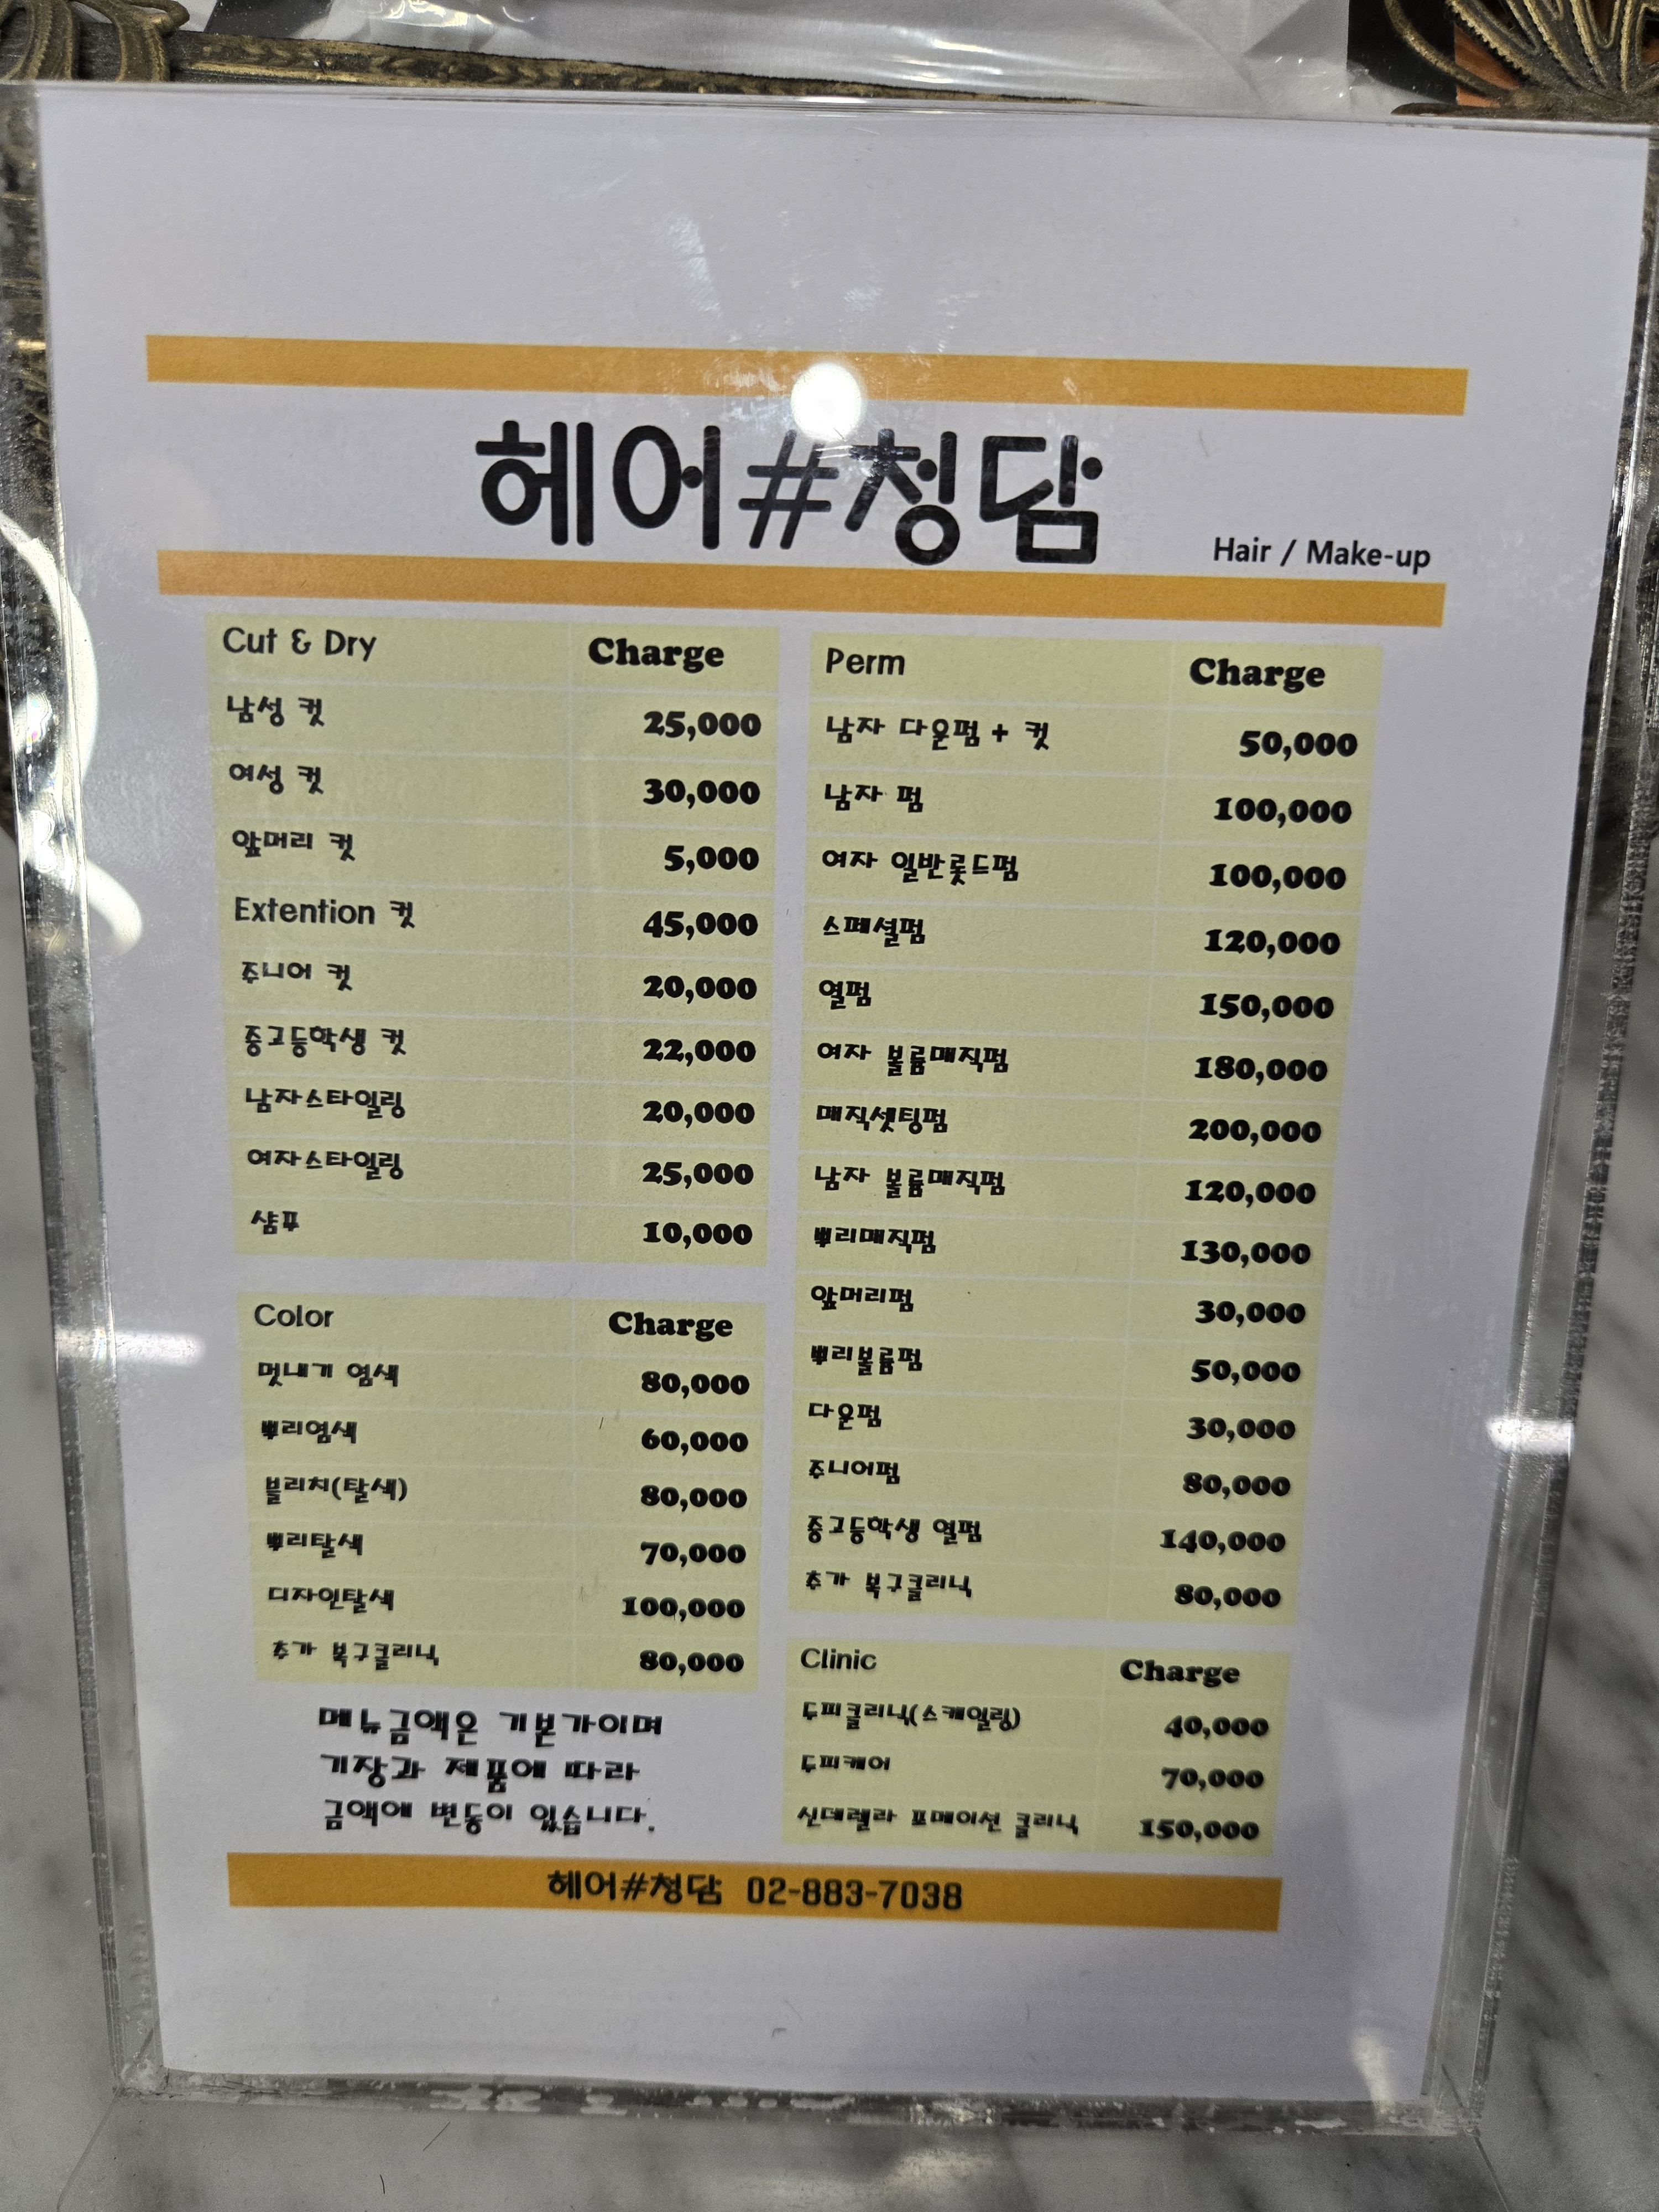 헤어#청담
Hair / Make-up
Cut & Dry Charge
남성 컷 25,000
여성 컷 30,000
앞머리 컷 5,000
Extention 컷 45,000
주니어 컷 20,000
중고등학생 컷 22,000
남자스타일링 20,000
여자스타일링 25,000
샴푸 10,000
Color Charge
멋내기 염색 80,000
뿌리염색 60,000
블리치(탈색) 80,000
뿌리탈색 70,000
디자인탈색 100,000
추가 복구클리닉 80,000
메뉴금액은 기본가이며
기장과 제품에 따라
금액에 변동이 있습니다.
Perm Charge
남자 다운펌 + 컷 50,000
남자 펌 100,000
여자 일반롯드펌 100,000
스페셜펌 120,000
열펌 150,000
여자 볼륨매직펌 180,000
매직셋팅펌 200,000
남자 볼륨매직펌 120,000
뿌리매직펌 130,000
앞머리펌 30,000
뿌리볼륨펌 50,000
다운펌 30,000
주니어펌 80,000
중고등학생 열펌 140,000
추가 복구클리닉 80,000
Clinic Charge
두피클리닉(스케일링) 40,000
두피케어 70,000
신데렐라 포메이션 클리닉 150,000
헤어#청담 02-883-7038